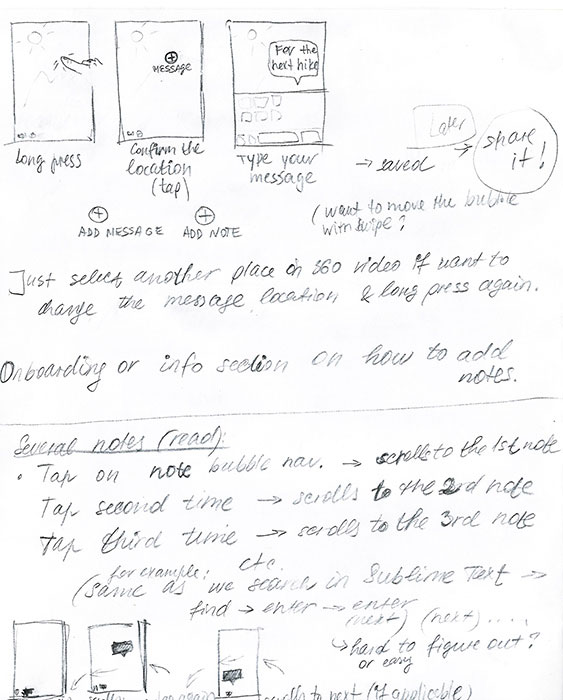 MESSAGE
For the
next hike
Long press
Confirm the
location
(tap)
Type your
message
→ saved
Later
→ share
it!
(want to move the bubble
with swipe?
ADD MESSAGE ADD NOTE
Just select another place on 360 video if want to
change the message location & long press again.
Onboarding or info section on how to add
notes.
Several notes (read):
• Tap on note bubble nav. → scrolls to the 1st note
Tap second time → scrolls to the 2nd note
Tap third time → scrolls to the 3rd note
etc.
for example:
(same as we search in Sublime Text →
find → enter → enter
(next) (next) ....
↳ hard to figure out?
or easy
to next (if applicable)